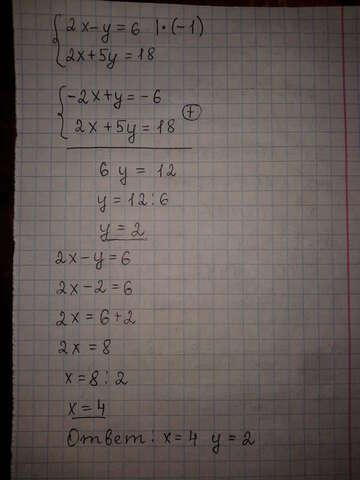 {2x-y=6 |·(-1)
{2x+5y=18
{-2x+y=-6
{2x+5y=18 ⊕
6y=12
y=12:6
y=2
2x-y=6
2x-2=6
2x=6+2
2x=8
x=8:2
x=4
Ответ: x=4 y=2